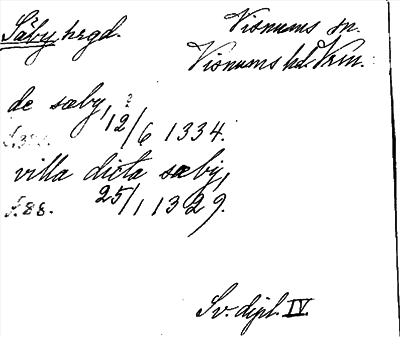 Säby, hrgd.
Visnums sn.
Visnums hd. Vrm.
de sæby, 12/6 1334.
villa dicta sæby,
s. 88. 25/1 1329.
Sv. dipl. IV.